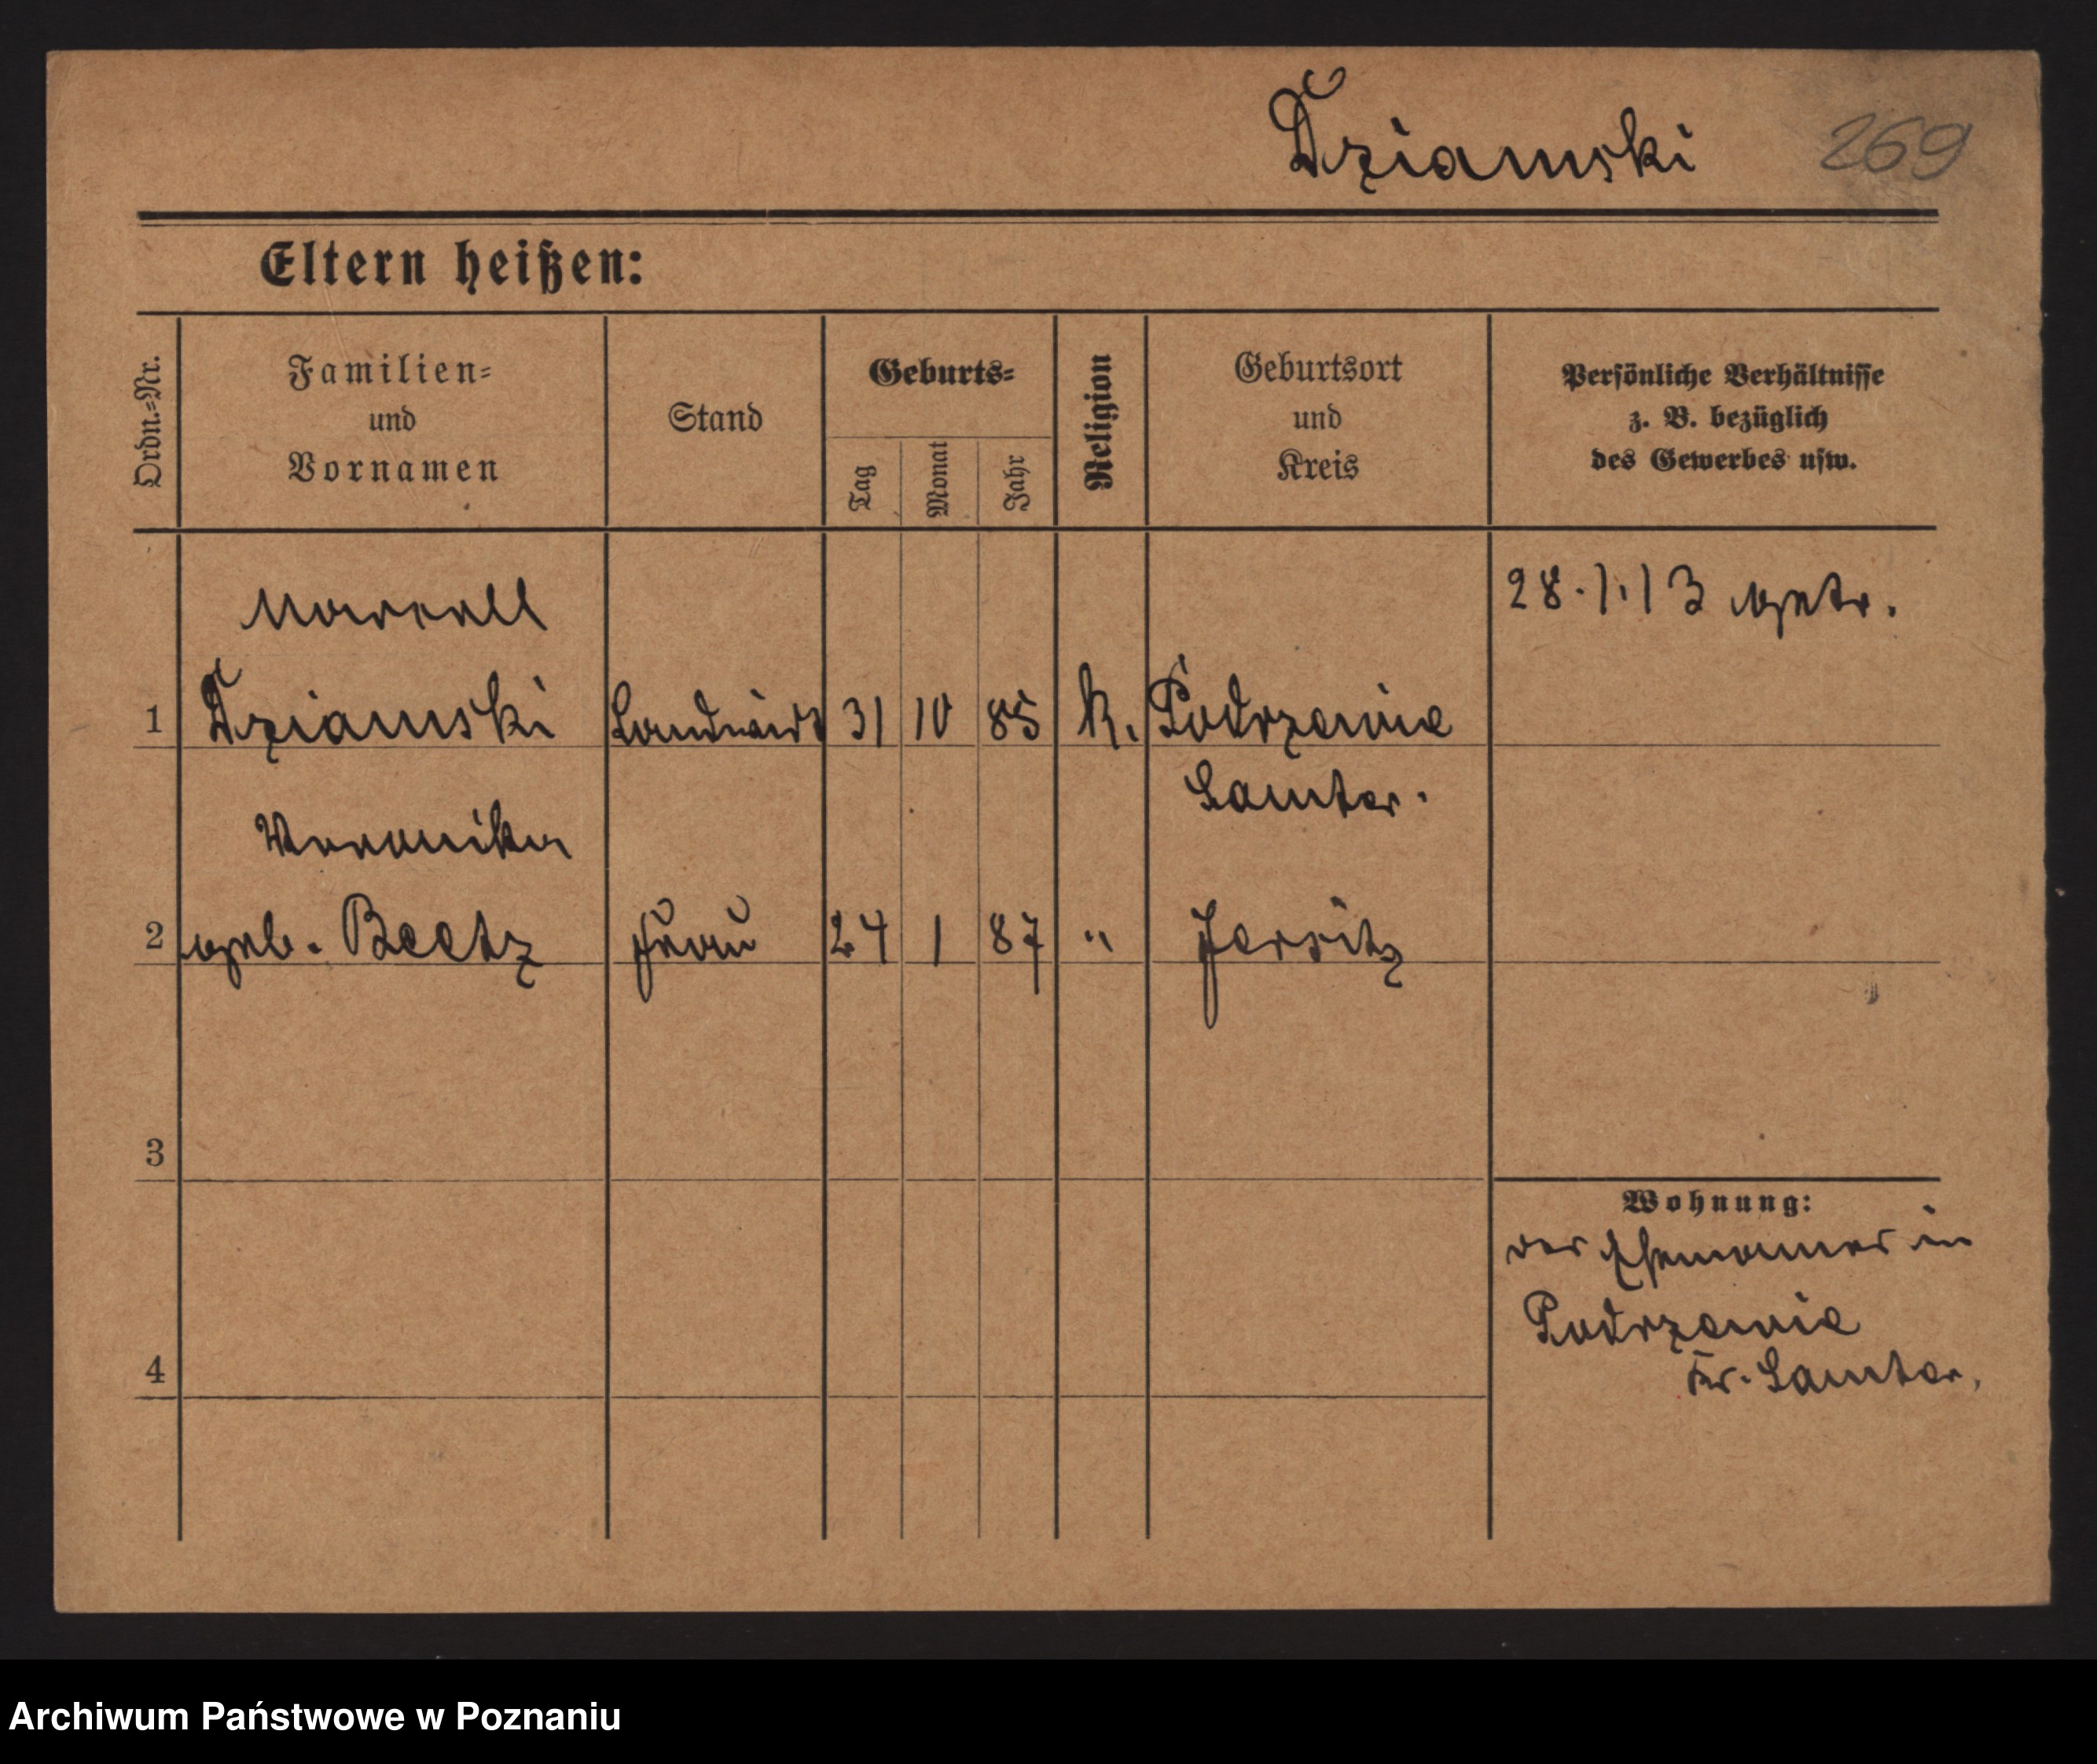 Dziamski 269
Eltern heißen:
Ordn.-Nr.
Familien-
und
Vornamen
Stand
Geburts-
Tag
Monat
Jahr
Religion
Geburtsort
und
Kreis
Persönliche Verhältnisse
z. B. bezüglich
des Gewerbes usw.
Marcell
28.1.13 getr.
1 Dziamski Landwirt 31 10 85 k. Podrzewie
Samter.
Veronika
2 geb. Beetz Frau 24 1 87 " Jersitz
3
Wohnung:
des Ehemannes in
Podrzewie
Kr. Samter.
4
Archiwum Państwowe w Poznaniu